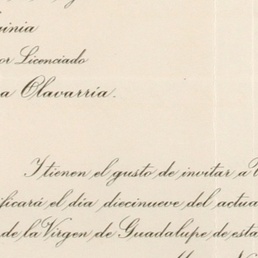 inia
or Licenciado
a Olavarria.
Y tienen el gusto de invitar a
ificará el dia diecinueve del actua
de la Virgen de Guadalupe, de esta